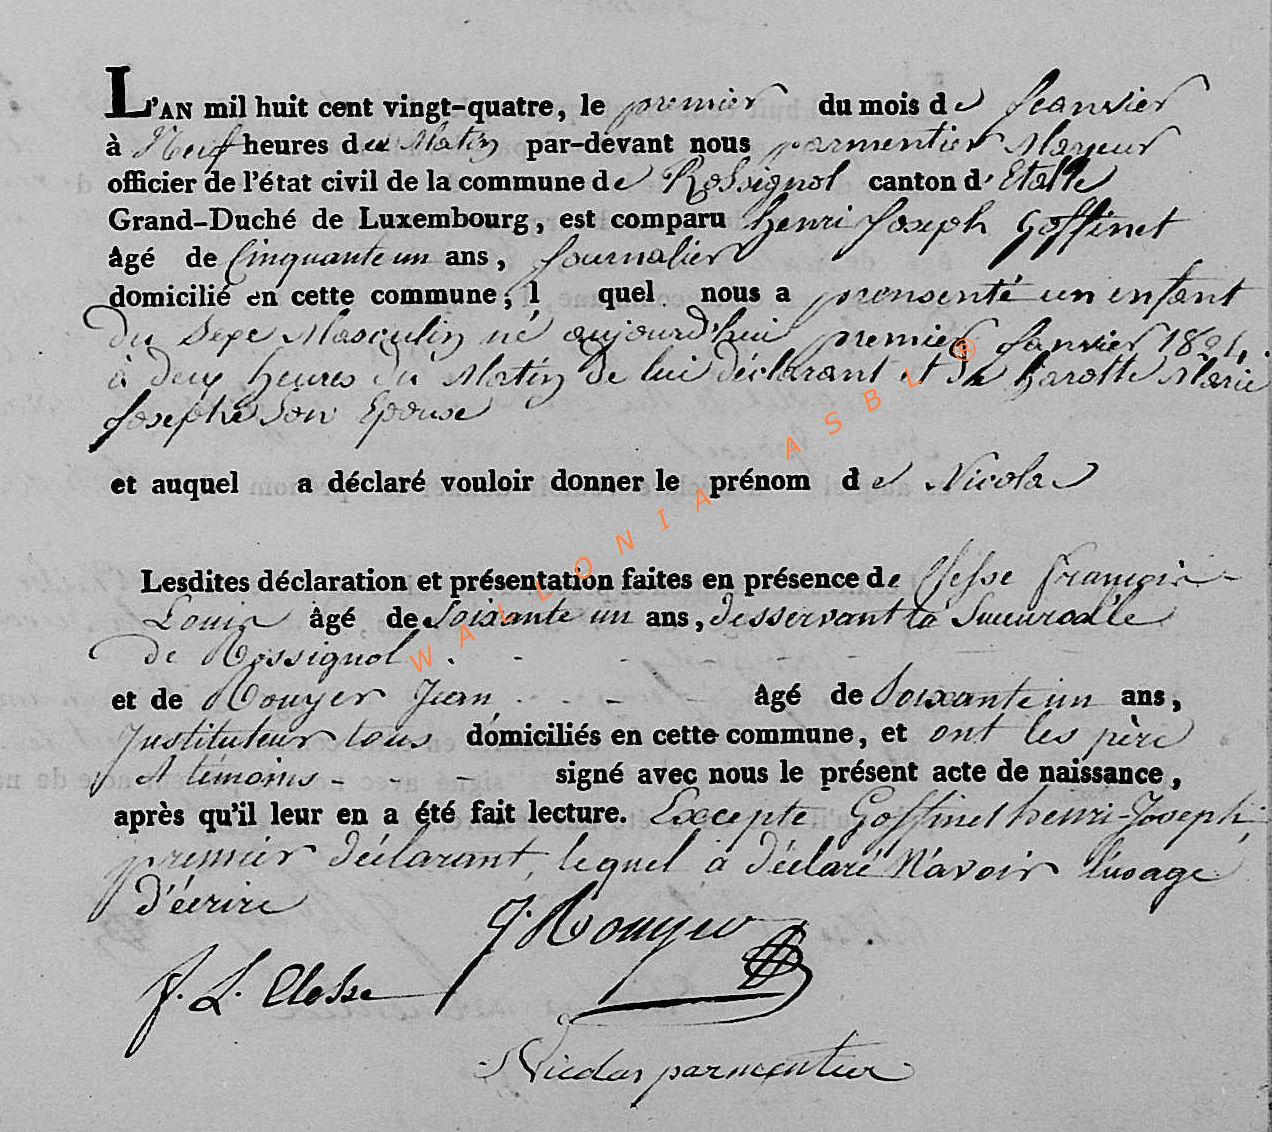 L'AN mil huit cent vingt-quatre, le premier du mois de Jeanvier
à Neuf heures du Matin par-devant nous parmentier Mayeur
officier de l'état civil de la commune de Rossignol canton d'Etalle
Grand-Duché de Luxembourg, est comparu henri Joseph Goffinet
âgé de Cinquante un ans, Journalier
domicilié en cette commune; l quel nous a pronsenté un enfant
du Sexe Masculin né aujourd'hui premier Janvier 1824.
à deux heures du Matin de lui déclarant et de harotte Marie
Josephe Son Epouse
et auquel a déclaré vouloir donner le prénom de Nicolas
Lesdites déclaration et présentation faites en présence de Clesse François
Louis âgé de Soixante un ans, desservant la Succuradle
de Rossignol
et de Rouyer Jean âgé de Soixante un ans,
Instituteur tous domiciliés en cette commune, et ont les père
et témoins - - - signé avec nous le présent acte de naissance,
après qu'il leur en a été fait lecture. Excepte Goffinet henri-Joseph
premier déclarant, lequel a déclaré N'avoir l'usage
D'écrire
J. Rouyer
f. L. Clesse
Nicolas parmentier
WALLONIA ASBL ®